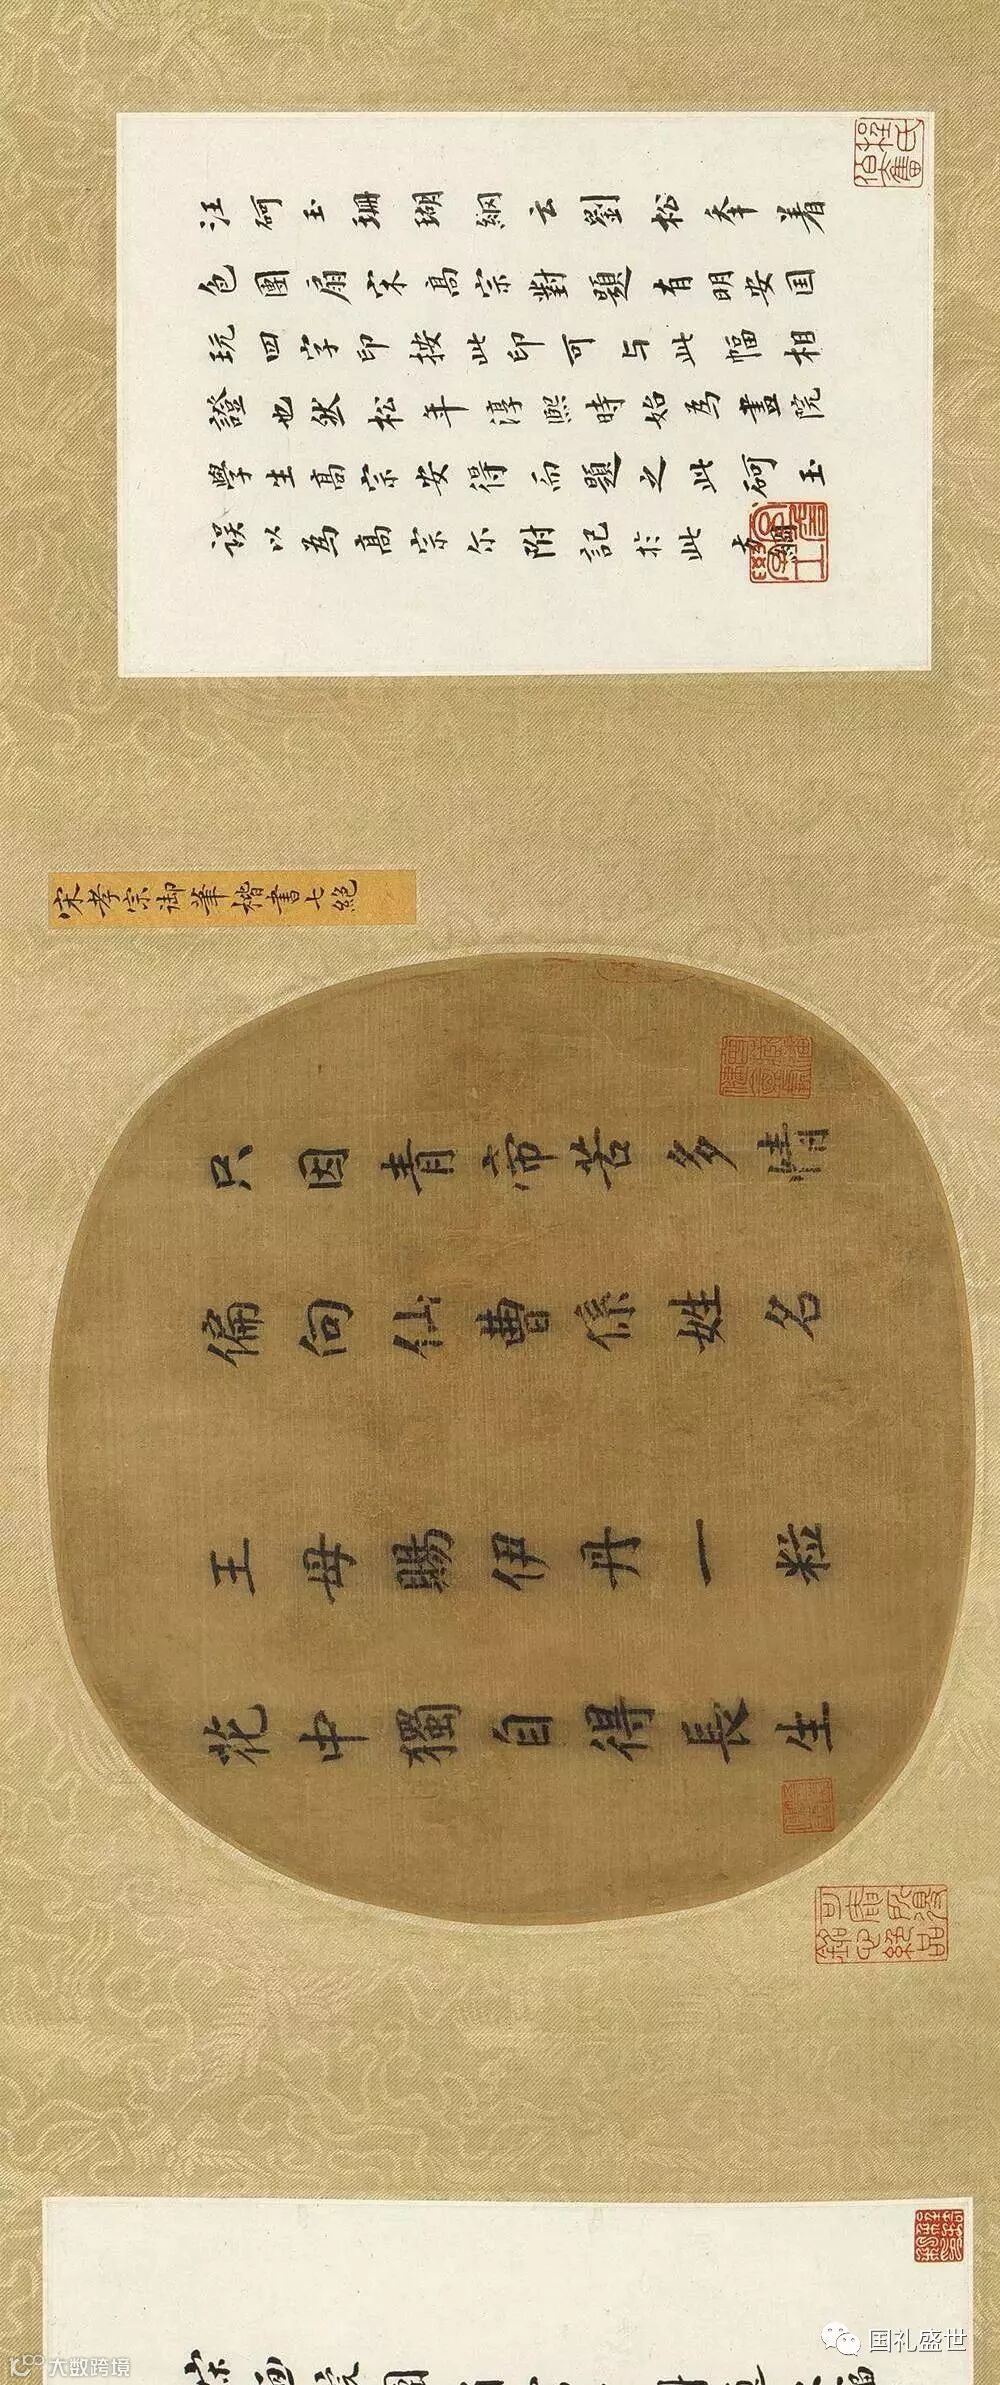 汪砢玉珊瑚網云劉松年着
色團扇宋高宗對題有明安国
玩四字印按此印可与此幅相
證也然松年淳熙時始為畫院
學生高宗安得而題之此砢玉
误以為高宗尔附記於此
宋孝宗御筆楷書七絕
只因青帝苦多情
偏向仙曹係姓名
王母賜伊丹一粒
花中獨自得長生
国礼盛世
大数跨境